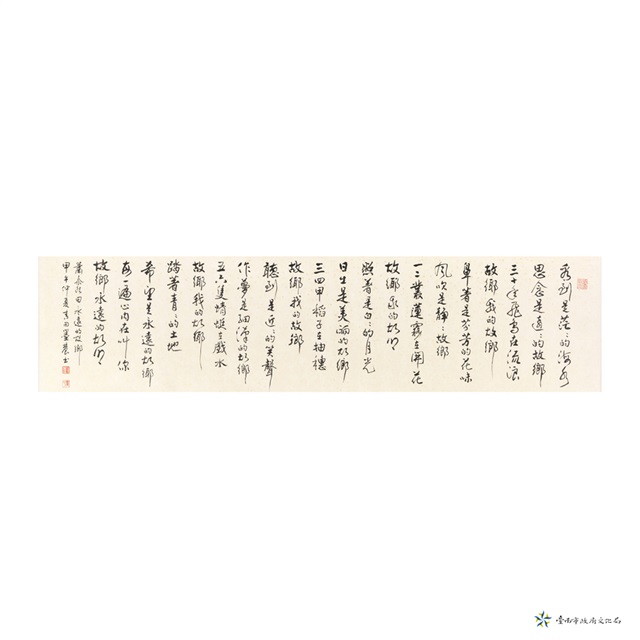 看到是茫〻的海水
思念是遠〻的故鄉
三十年飛鳥在流浪
故鄉我的故鄉
鼻著是芬芳的花味
風吹是〻故鄉
一二叢蓮霧在開花
故鄉我的故鄉
照著是白〻的月光
日生是美麗的故鄉
三四甲稻子在抽穗
故鄉我的故鄉
聽到是近〻的笑聲
作夢是細漢的故鄉
五六隻蜻蜓在戲水
故鄉我的故鄉
踏著青〻的土地
希望是永遠的故鄉
每一遍心內在叫你
故鄉永遠的故鄉
永遠的故鄉
甲午仲夏 書
臺南市政府文化局